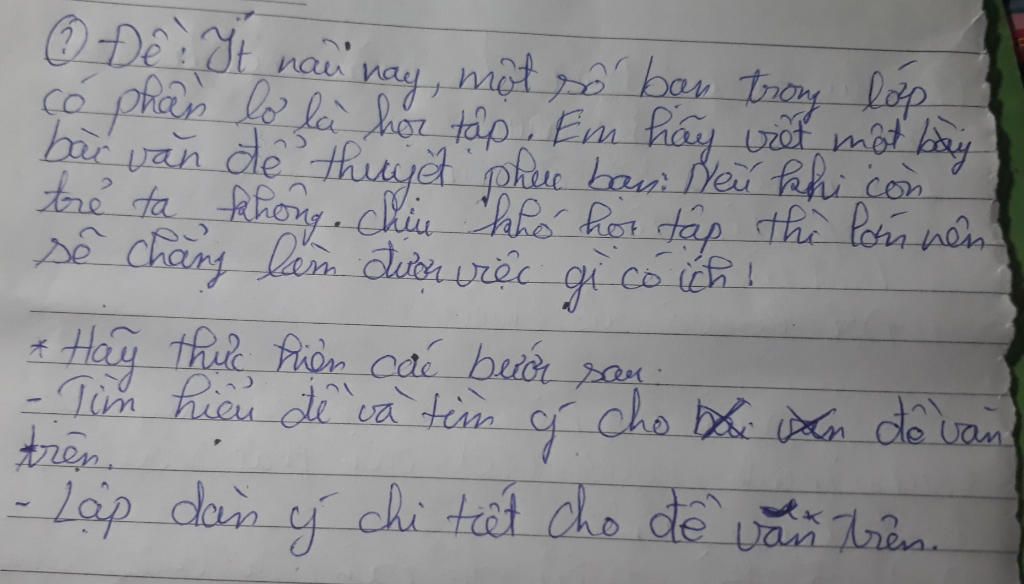 ① Đề: Ít nâu nay, một số bạn trong lớp
có phần lơ là học tập. Em hãy viết một bày
bài văn để thuyết phục bạn: Nếu khi còn
trẻ ta không. chịu khó học tập thì lớn nên
sẽ chẳng làm được việc gì có ích!
* Hãy thực hiện các bước sau.
- Tìm hiểu đề và tìm ý cho đề văn
trên.
- Lập dàn ý chi tiết cho đề văn trên.